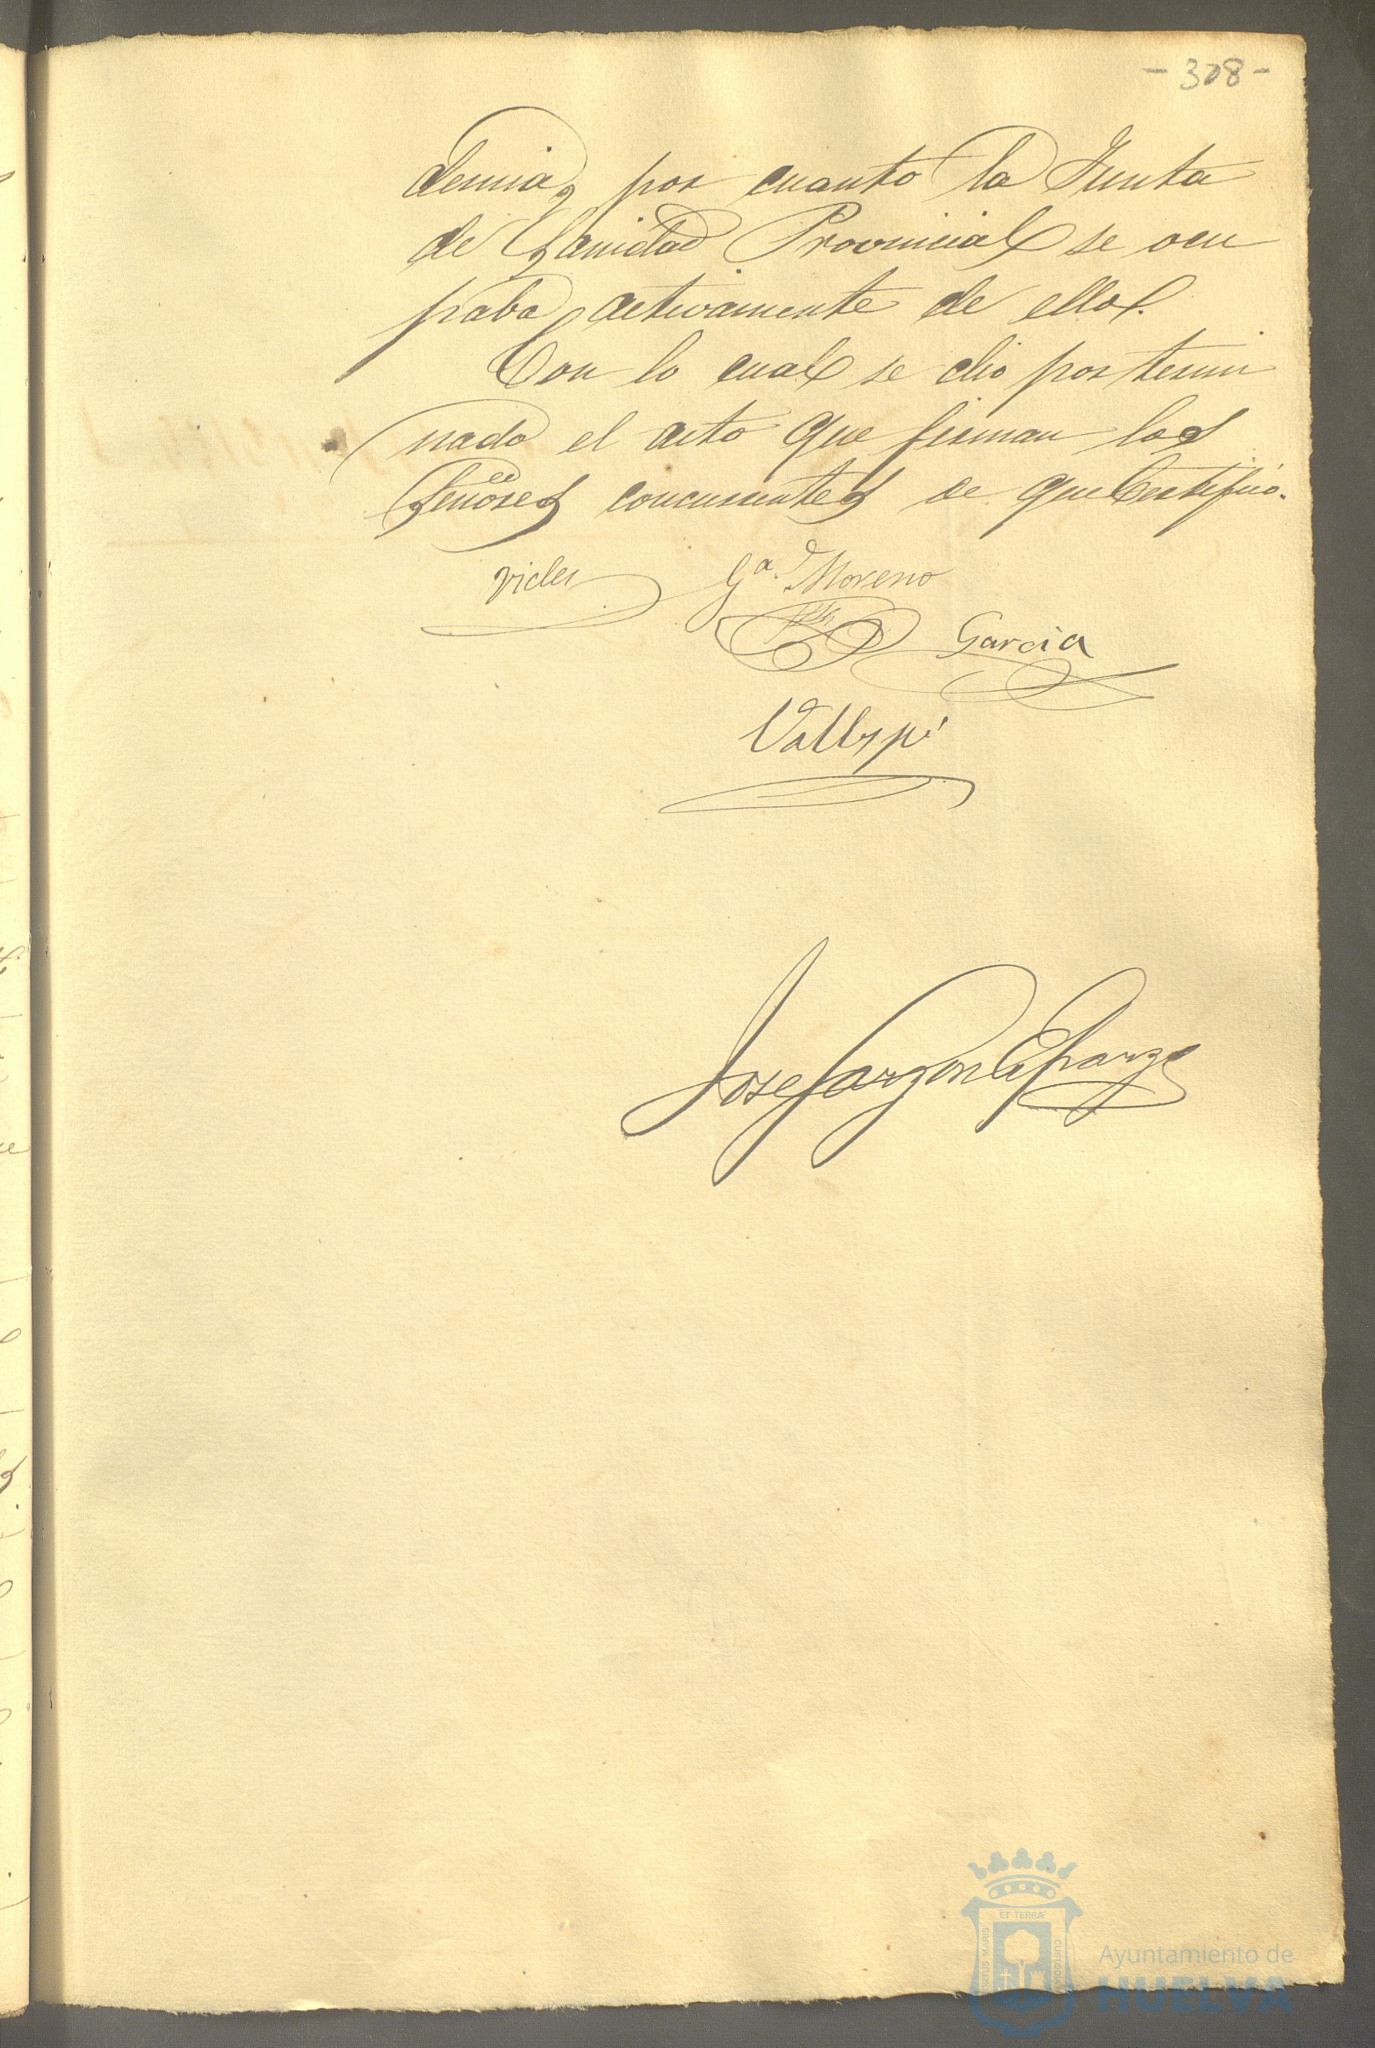 - 308 -
demia, por cuanto la Junta
de Sanidad Provincial se ocu
paba activamente de ellos.
Con lo cual se dio por termi
nado el acto que firman los
Señores concurrentes de que Certifico.
Gª Moreno
Garcia
Vallespí
Jose Garzon Esparza
ET TERRÆ
PORTUS MARIS
CUSTODIA
Ayuntamiento de
HUELVA